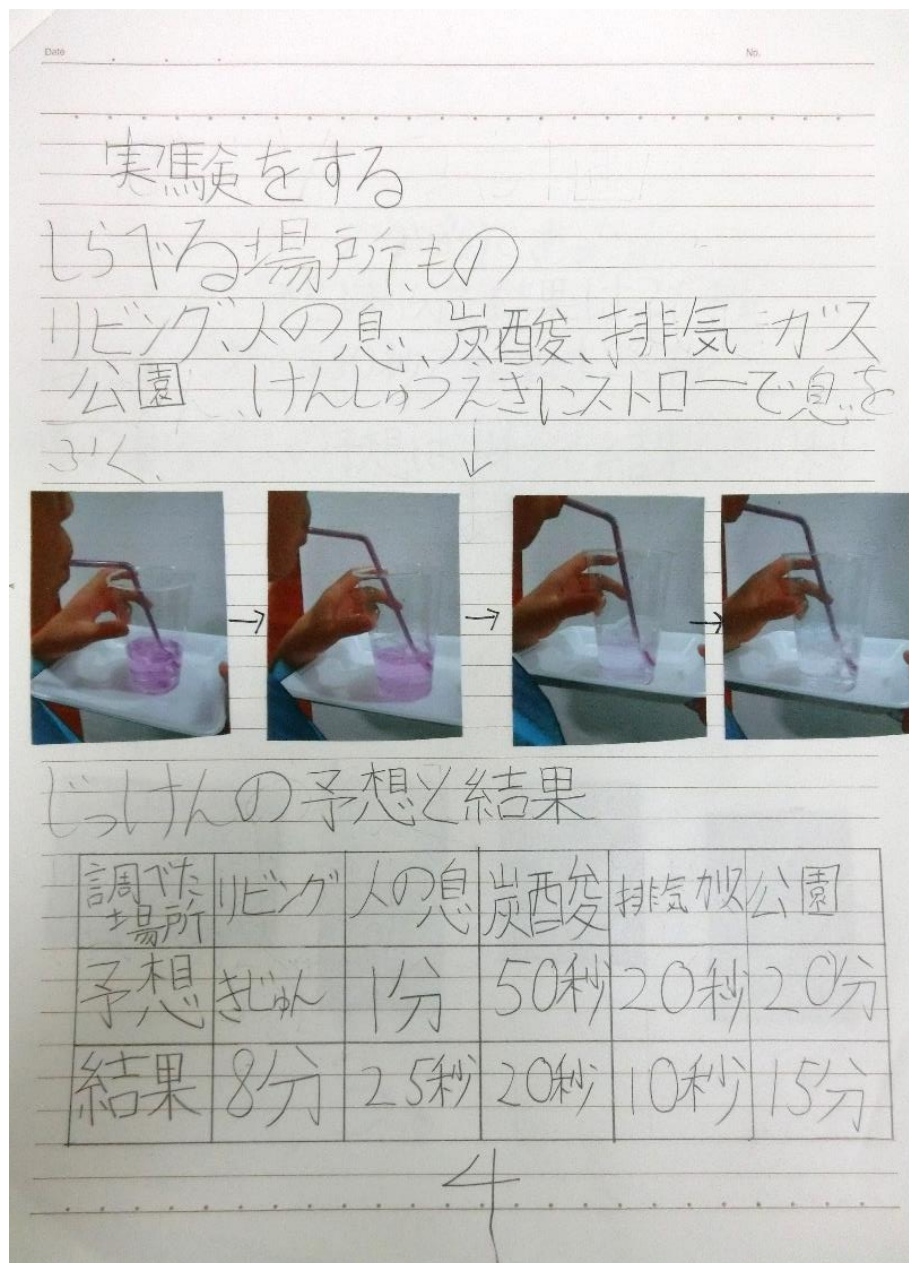 Date
No.
実験をする
しらべる場所、もの
リビング、人の息、炭酸、排気ガス
公園、けんしゅつえきにストローで息を
ふく、
↓
→ → →
じっけんの予想と結果
調べた場所 リビング 人の息 炭酸 排気ガス 公園
予想 きじゅん 1分 50秒 20秒 20分
結果 8分 25秒 20秒 10秒 15分
4